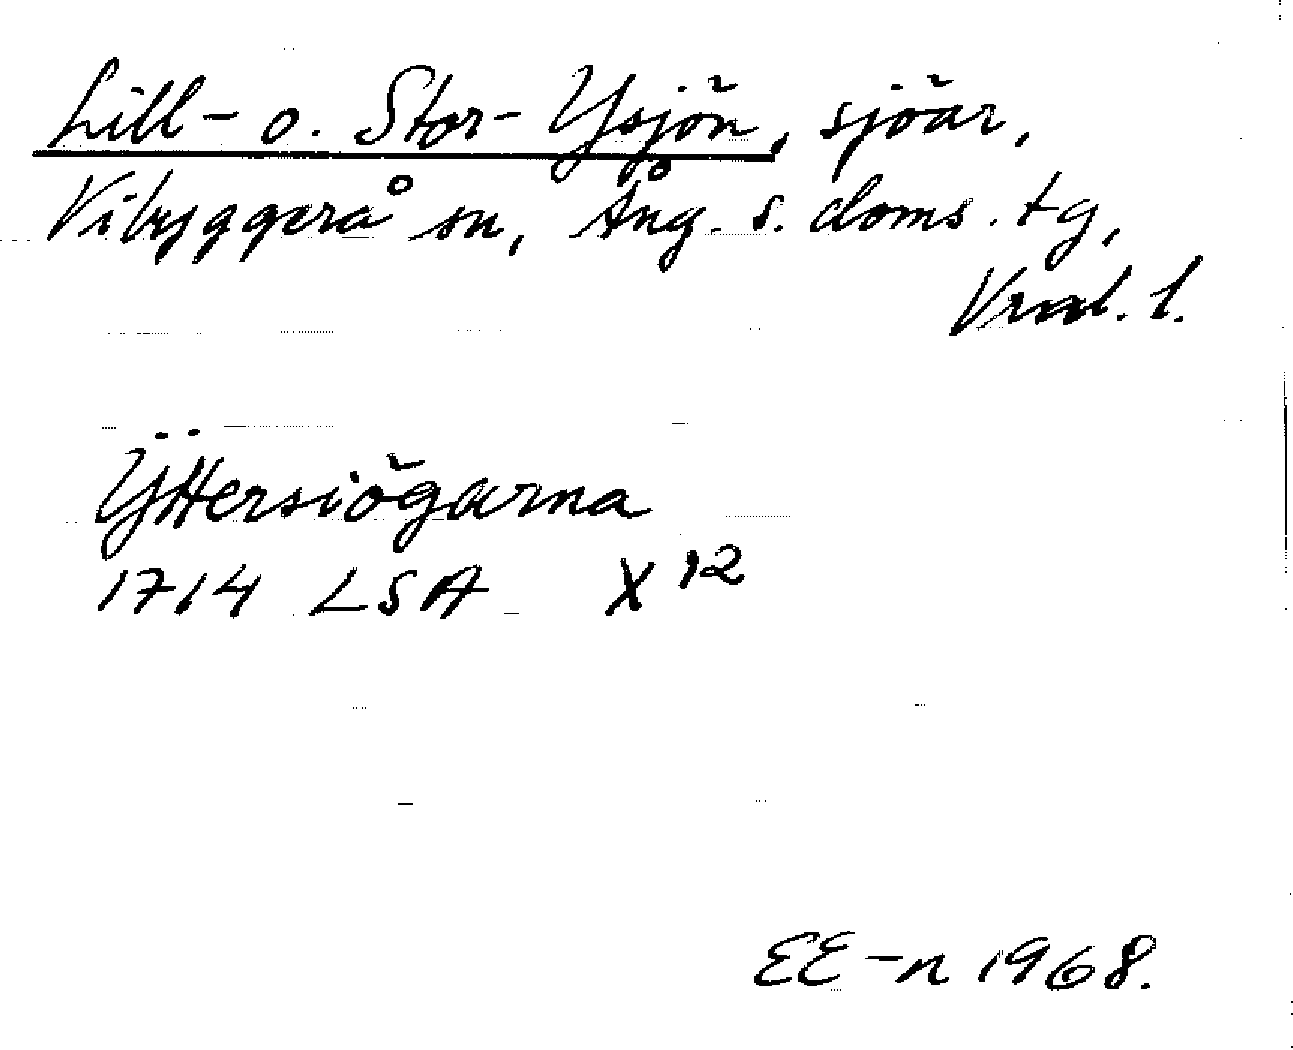 Lill- o. Stor-Ysjön, sjöar,
Vibyggerå sn, Ång. s. doms. tg,
Vnl. l.
Ÿttersiögarna
1714 LSA X 12
EE-n 1968.